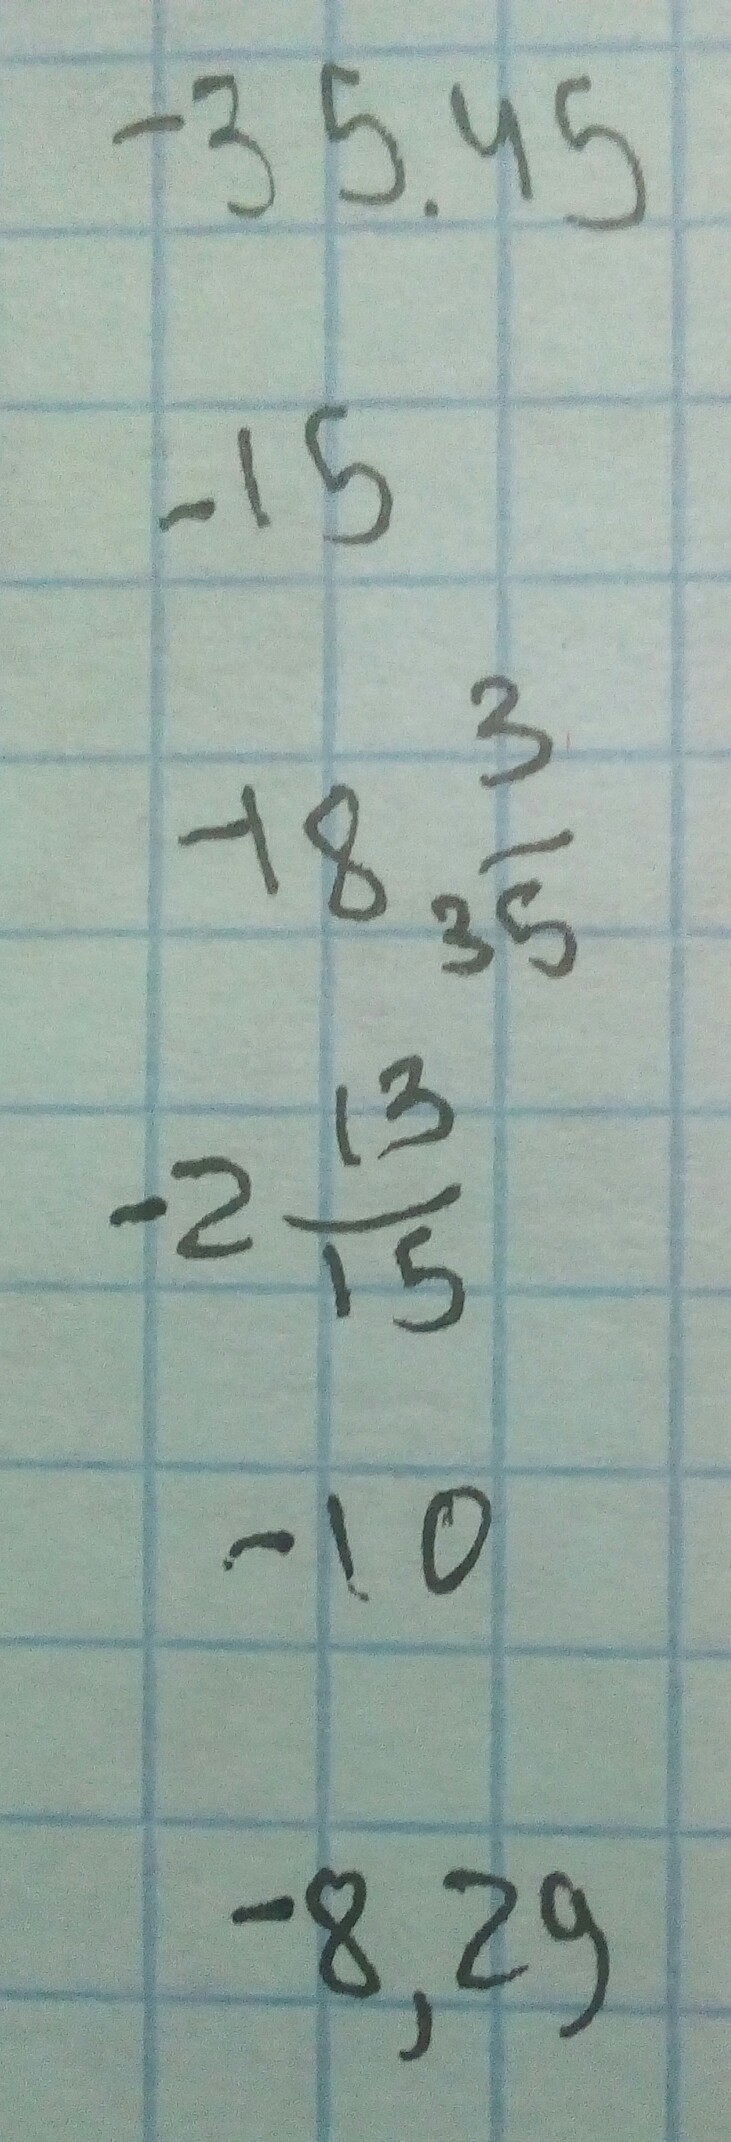 -35.45
-15
-18 3/35
-2 13/15
-10
-8,29